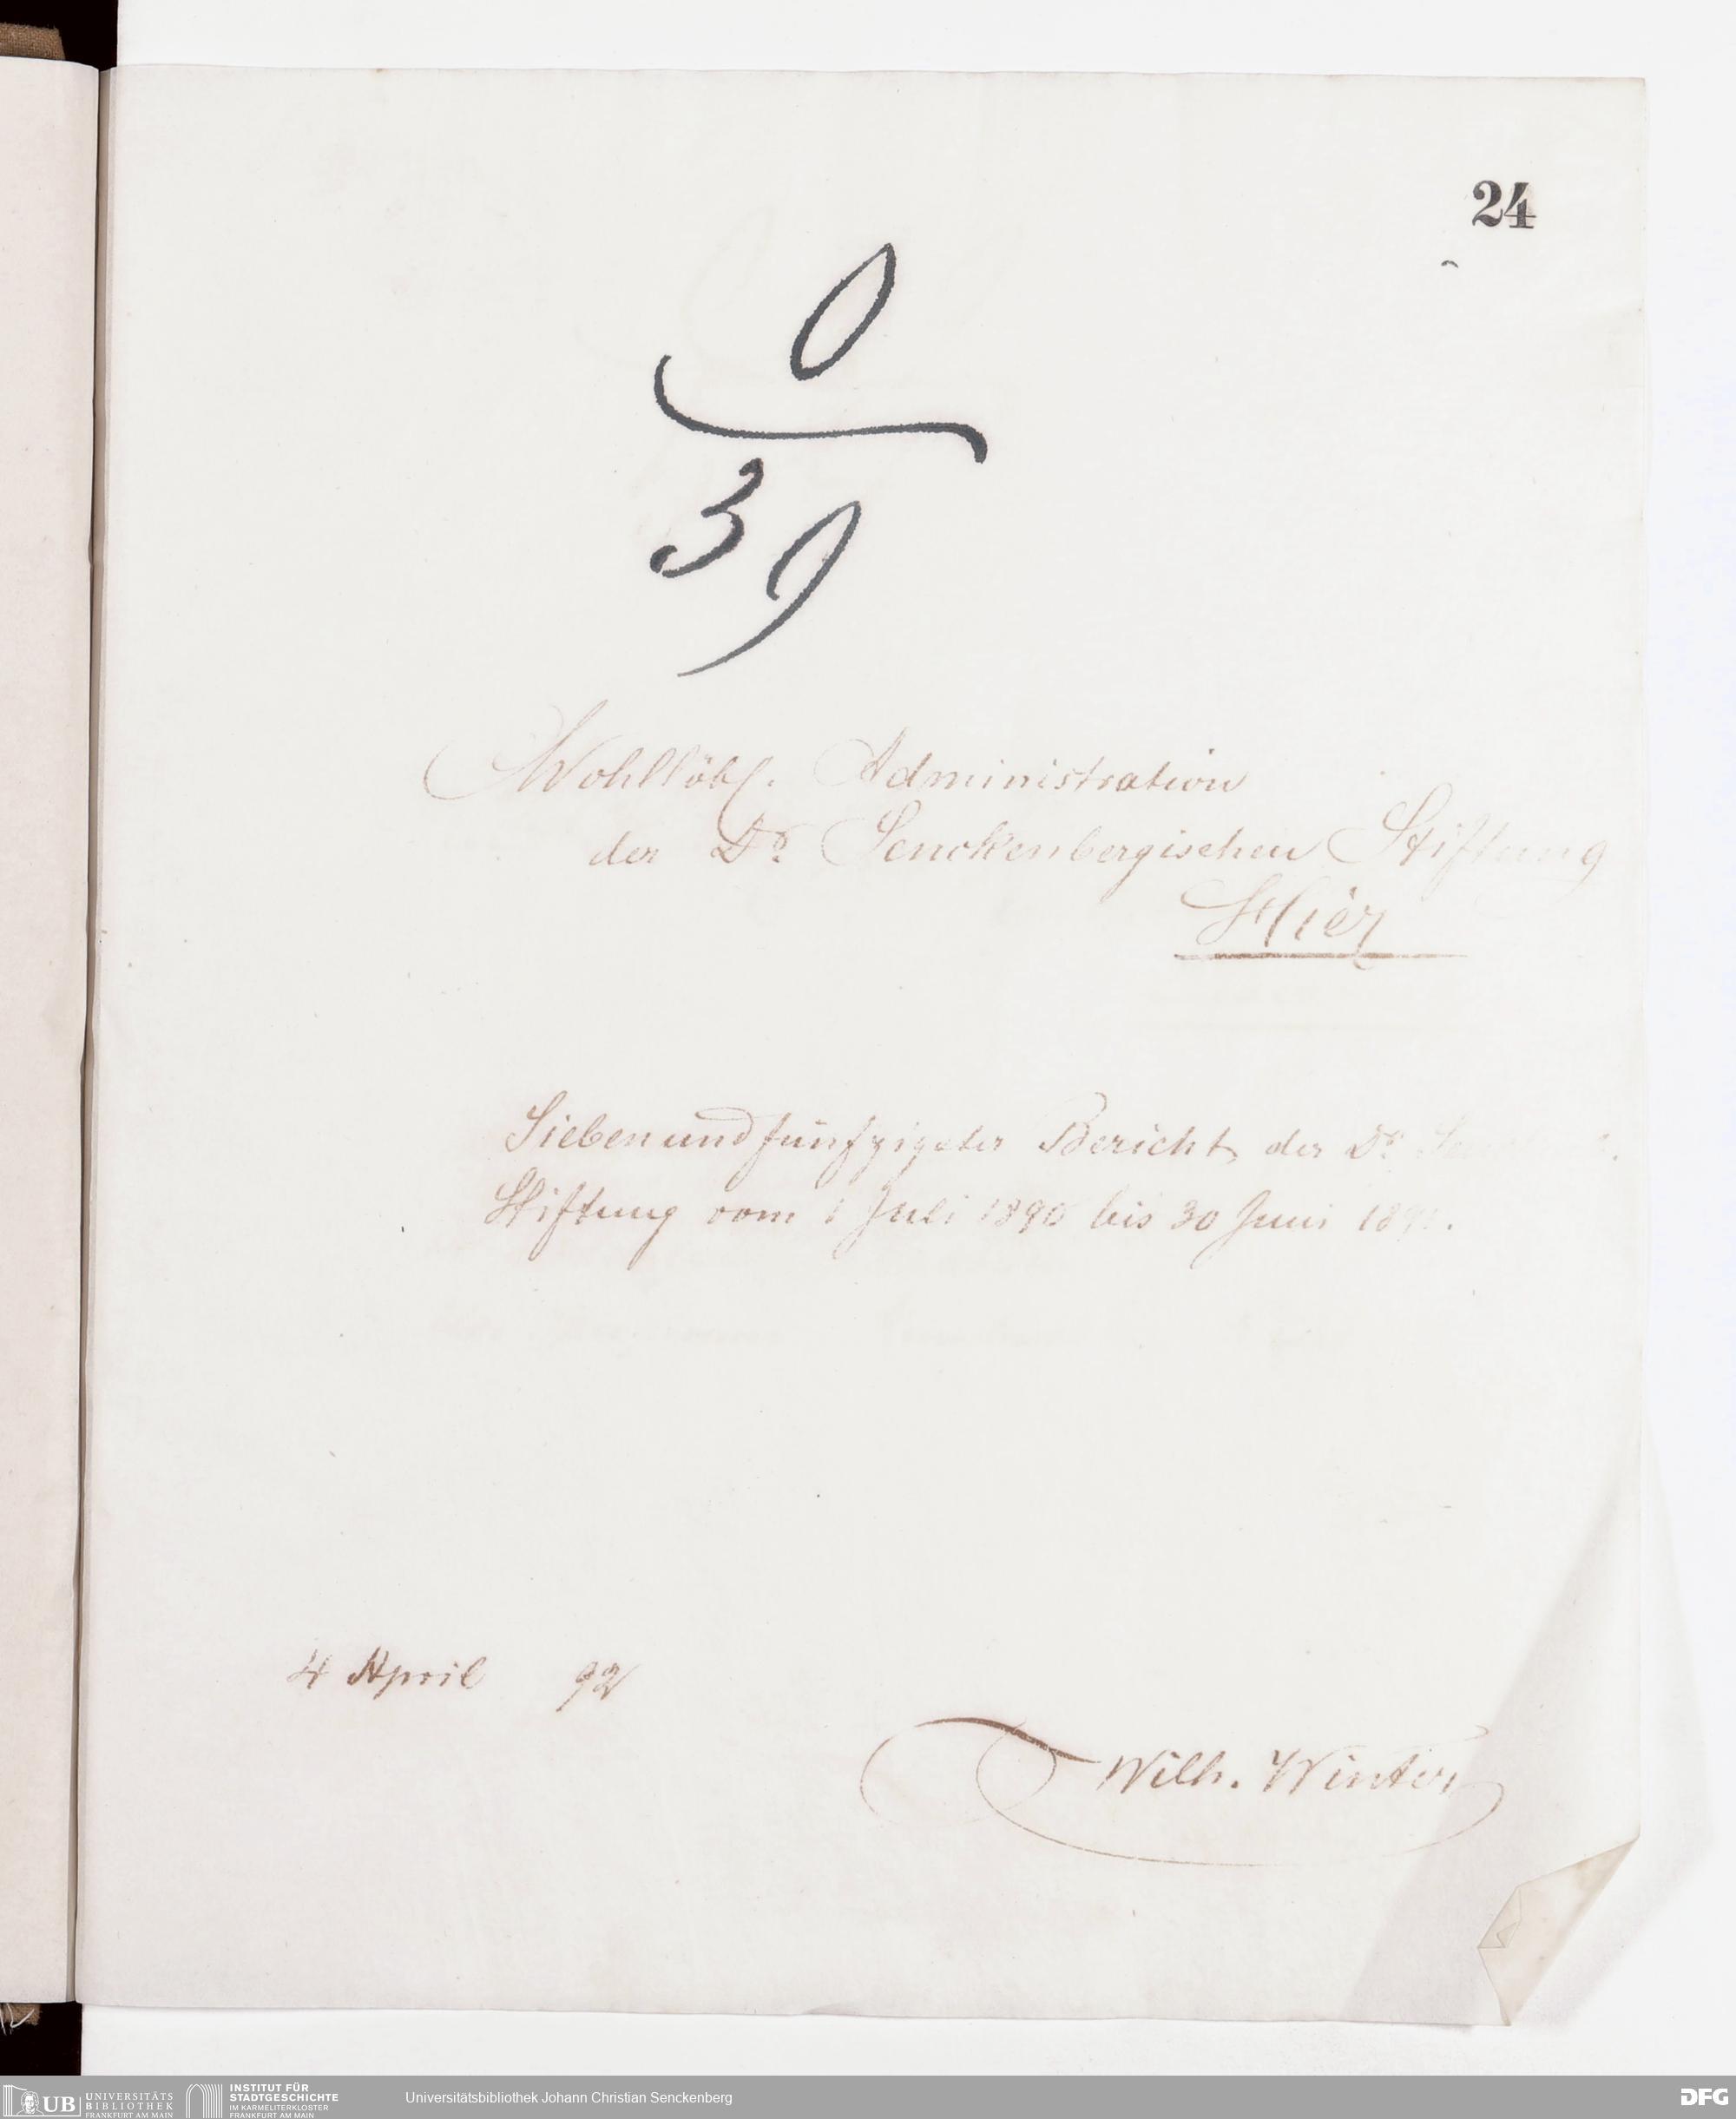 24
0
39
Wohllöbl. Administration
der Dr. Senckenbergischen Stiftung
Hier
Siebenundfünfzigster Bericht der Dr.
Stiftung vom 1 Juli 1890 bis 30 Juni
4 April 92
Wilh. Winter
UB UNIVERSITÄTS
BIBLIOTHEK
FRANKFURT AM MAIN
INSTITUT FÜR
STADTGESCHICHTE
IM KARMELITERKLOSTER
FRANKFURT AM MAIN
Universitätsbibliothek Johann Christian Senckenberg
DFG